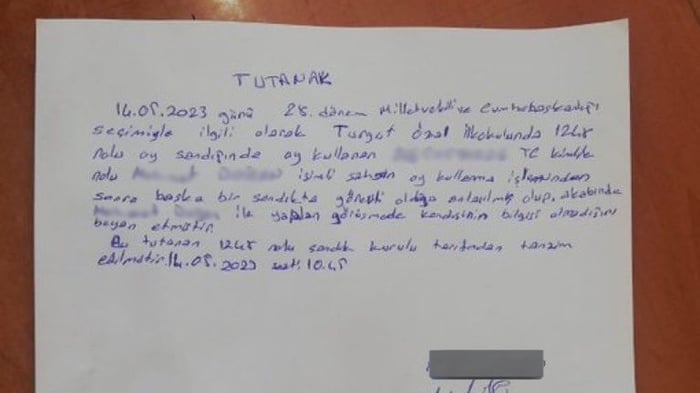 TUTANAK
14.05.2023 günü 28. dönem Milletvekili ve Cumhurbaşkanlığı
seçimiyle ilgili olarak Turgut Özal İlkokulunda 1248
nolu oy sandığında oy kullanan TC kimlik
nolu isimli şahsın oy kullanma işleminden
sonra başka bir sandıkta görevli olduğu anlaşılmış olup, akabinde
ile yapılan görüşmede kendisinin bilgisi olmadığını
beyan etmiştir.
Bu tutanak 1248 nolu sandık kurulu tarafından tanzim
edilmiştir. 14.05.2023 saat: 10.45